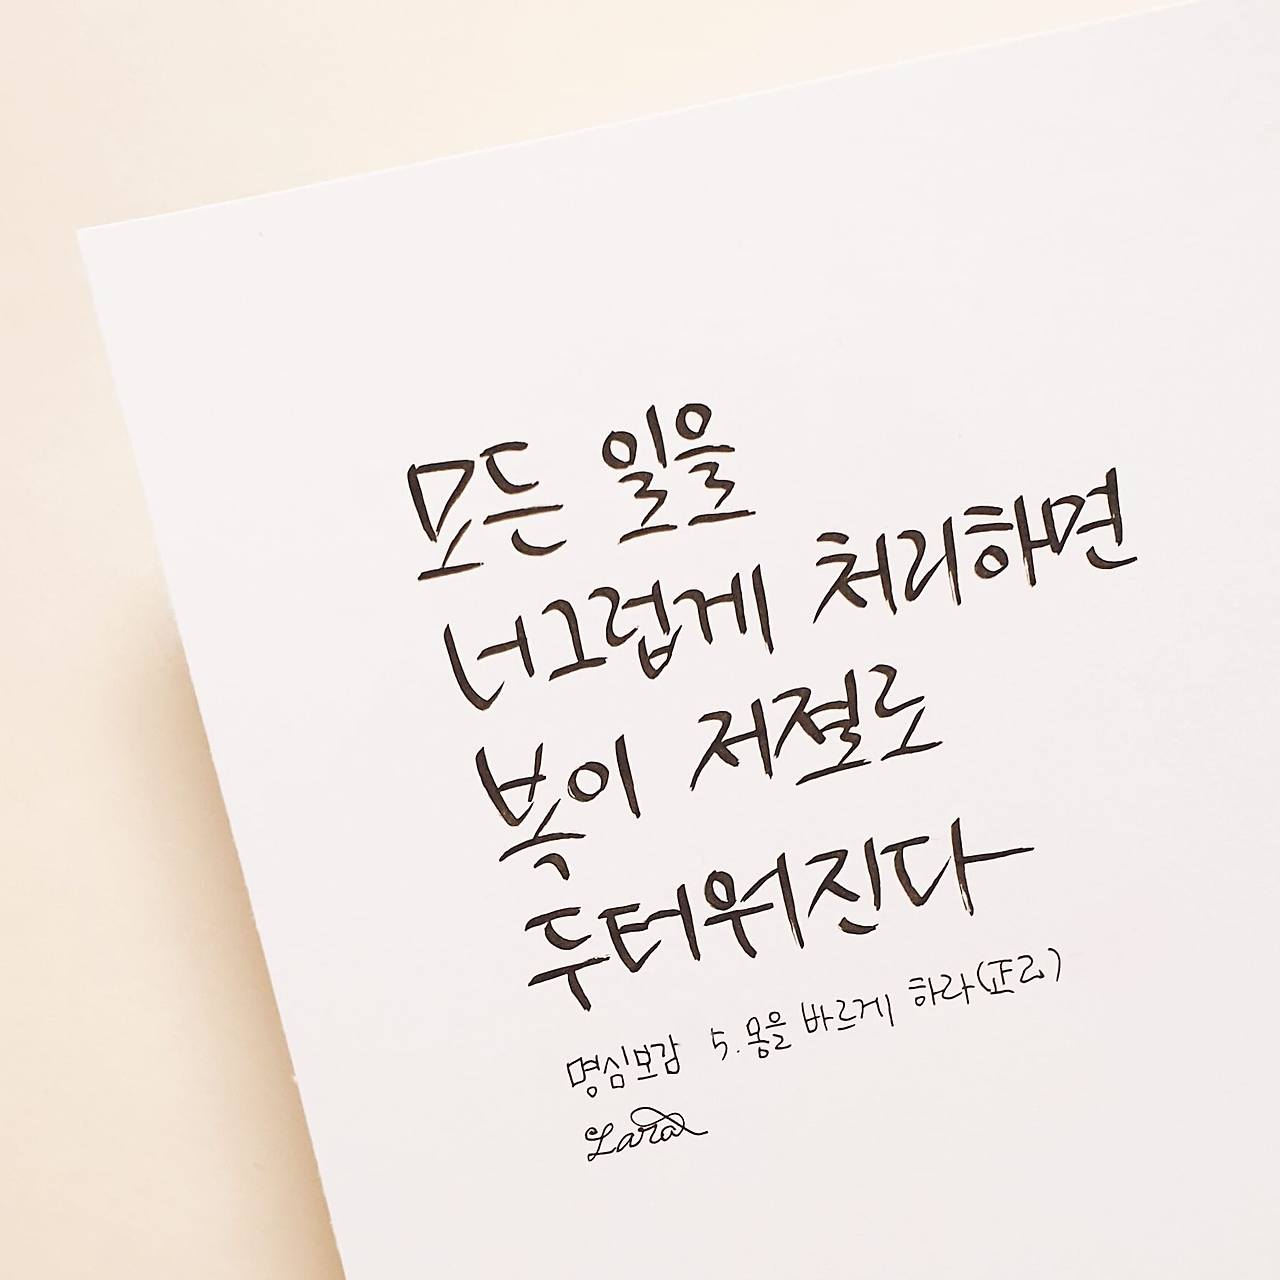 모든 일을
너그럽게 처리하면
복이 저절로
두터워진다
명심보감 5. 몸을 바르게 하라(正己)
Lara